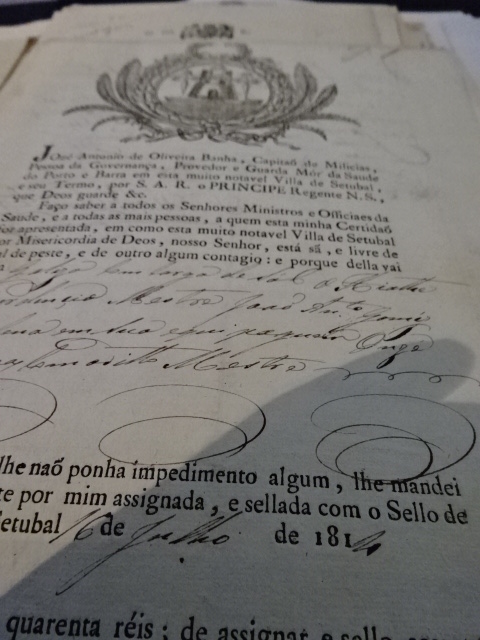 José Antonio de Oliveira Banha, Capitaõ de Milicias,
Pessoa da Governança, Provedor e Guarda Mór da Saude
do Porto e Barra em esta muito notavel Villa de Setubal,
e seu Termo, por S. A. R. o PRINCIPE Regente N. S.,
que Deos guarde &c.
Faço saber a todos os Senhores Ministros e Officiaes da
Saude, e a todas as mais pessoas, a quem esta minha Certidaõ
for apresentada, em como esta muito notavel Villa de Setubal
por Misericordia de Deos, nosso Senhor, está sã, e livre de
mal de peste, e de outro algum contagio: e porque della vai
carga de Sal o Hiate
Mestre João Ant.º
Onze
o dito Mestre
lhe naõ ponha impedimento algum, lhe mandei
te por mim assignada, e sellada com o Sello de
Setubal 16 de Julho de 1814
quarenta réis: de assignar e sello